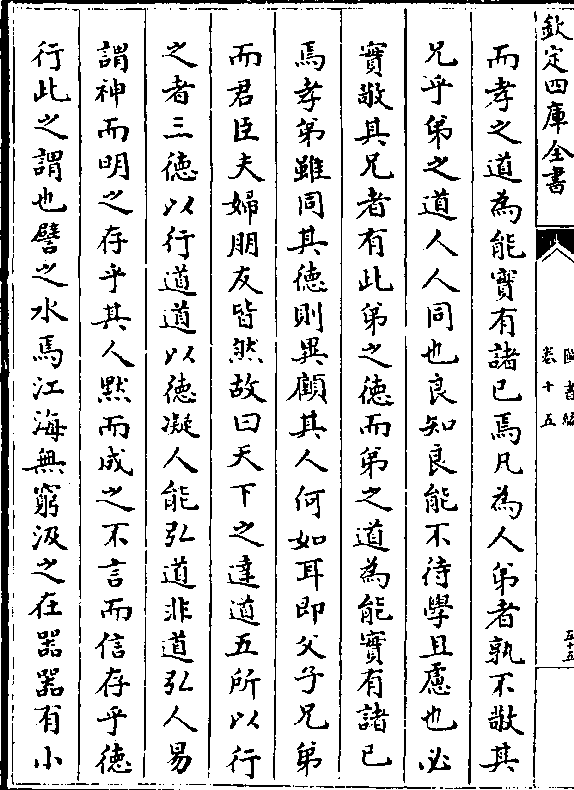 欽定四庫全書
卷十五
五十五
而孝之道為能實有諸已焉凡為人弟者孰不敬其
兄乎弟之道人人同也良知良能不待學且慮也必
實敬其兄者有此弟之德而弟之道為能實有諸已
焉孝弟雖同其德則異顧其人何如耳即父子兄弟
而君臣夫婦朋友皆然故曰天下之達道五所以行
之者三德以行道道以德凝人能弘道非道弘人易
謂神而明之存乎其人黙而成之不言而信存乎德
行此之謂也譬之水焉江海無窮汲之在器器有小